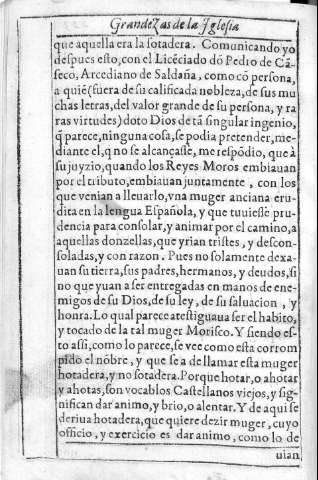 Grandezas de la Iglesia
que aquella era la sotadera. Comunicando yo
despues esto, con el Licẽciado dõ Pedro de Cã-
seco, Arcediano de Saldaña, como cõ persona,
a quiẽ (fuera de su calificada nobleza, de sus mu
chas letras, del valor grande de su persona, y ra
ras virtudes) doto Dios de tã singular ingenio,
q̃ parece, ninguna cosa, se podia pretender, me-
diante el, q̃ no se alcançasse, me respõdio, que à
su juyzio, quando los Reyes Moros embiauan
por el tributo, embiauan juntamente, con los
que venian a lleuarlo, vna muger anciana eru-
dita en la lengua Española, y que tuuiesse pru-
dencia para consolar, y animar por el camino, a
aquellas donzellas, que yrian tristes, y descon-
soladas, y con razon. Pues no solamente dexa-
uan su tierra, sus padres, hermanos, y deudos, si
no que yuan a ser entregadas en manos de ene-
migos de su Dios, de su ley, de su saluacion, y
honra. Lo qual parece atestiguaua ser el habito,
y tocado de la tal muger Morisco. Y siendo es-
to assi, como lo parece, se vee como esta corrom
pido el nõbre, y que se a de llamar esta muger
hotadera, y no sotadera. Porque hotar, o ahotar
y ahotas, son vocablos Castellanos viejos, y sig-
nifican dar animo, y brio, o alentar. Y de aqui se
deriua hotadera, que quiere dezir muger, cuyo
officio, y exercicio es dar animo, como lo de
uian